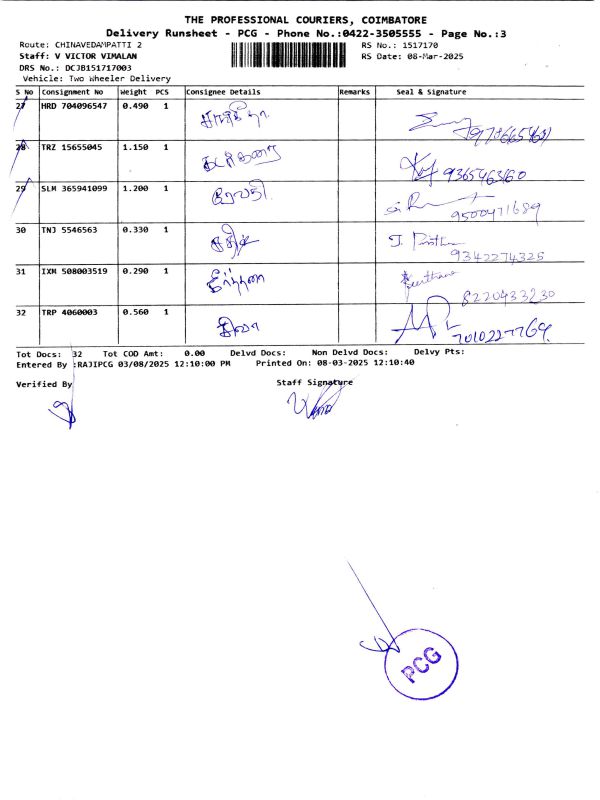 THE PROFESSIONAL COURIERS, COIMBATORE
Delivery Runsheet - PCG - Phone No.:0422-3505555 - Page No.:3
Route: CHINAVEDAMPATTI 2 RS No.: 1517170
Staff: V VICTOR VIMALAN RS Date: 08-Mar-2025
DRS No.: DCJB151717003
Vehicle: Two Wheeler Delivery
S No Consignment No Weight PCS Consignee Details Remarks Seal & Signature
27 HRD 704096547 0.490 1
28 TRZ 15655045 1.150 1
9365463160
29 SLM 365941099 1.200 1 ரேவதி
9500471689
30 TNJ 5546563 0.330 1
9342274325
31 IXM 508003519 0.290 1
8220433230
32 TRP 4060003 0.560 1
7010227769
Tot Docs: 32 Tot COD Amt: 0.00 Delvd Docs: Non Delvd Docs: Delvy Pts:
Entered By :RAJIPCG 03/08/2025 12:10:00 PM Printed On: 08-03-2025 12:10:40
Verified By Staff Signature
PCG